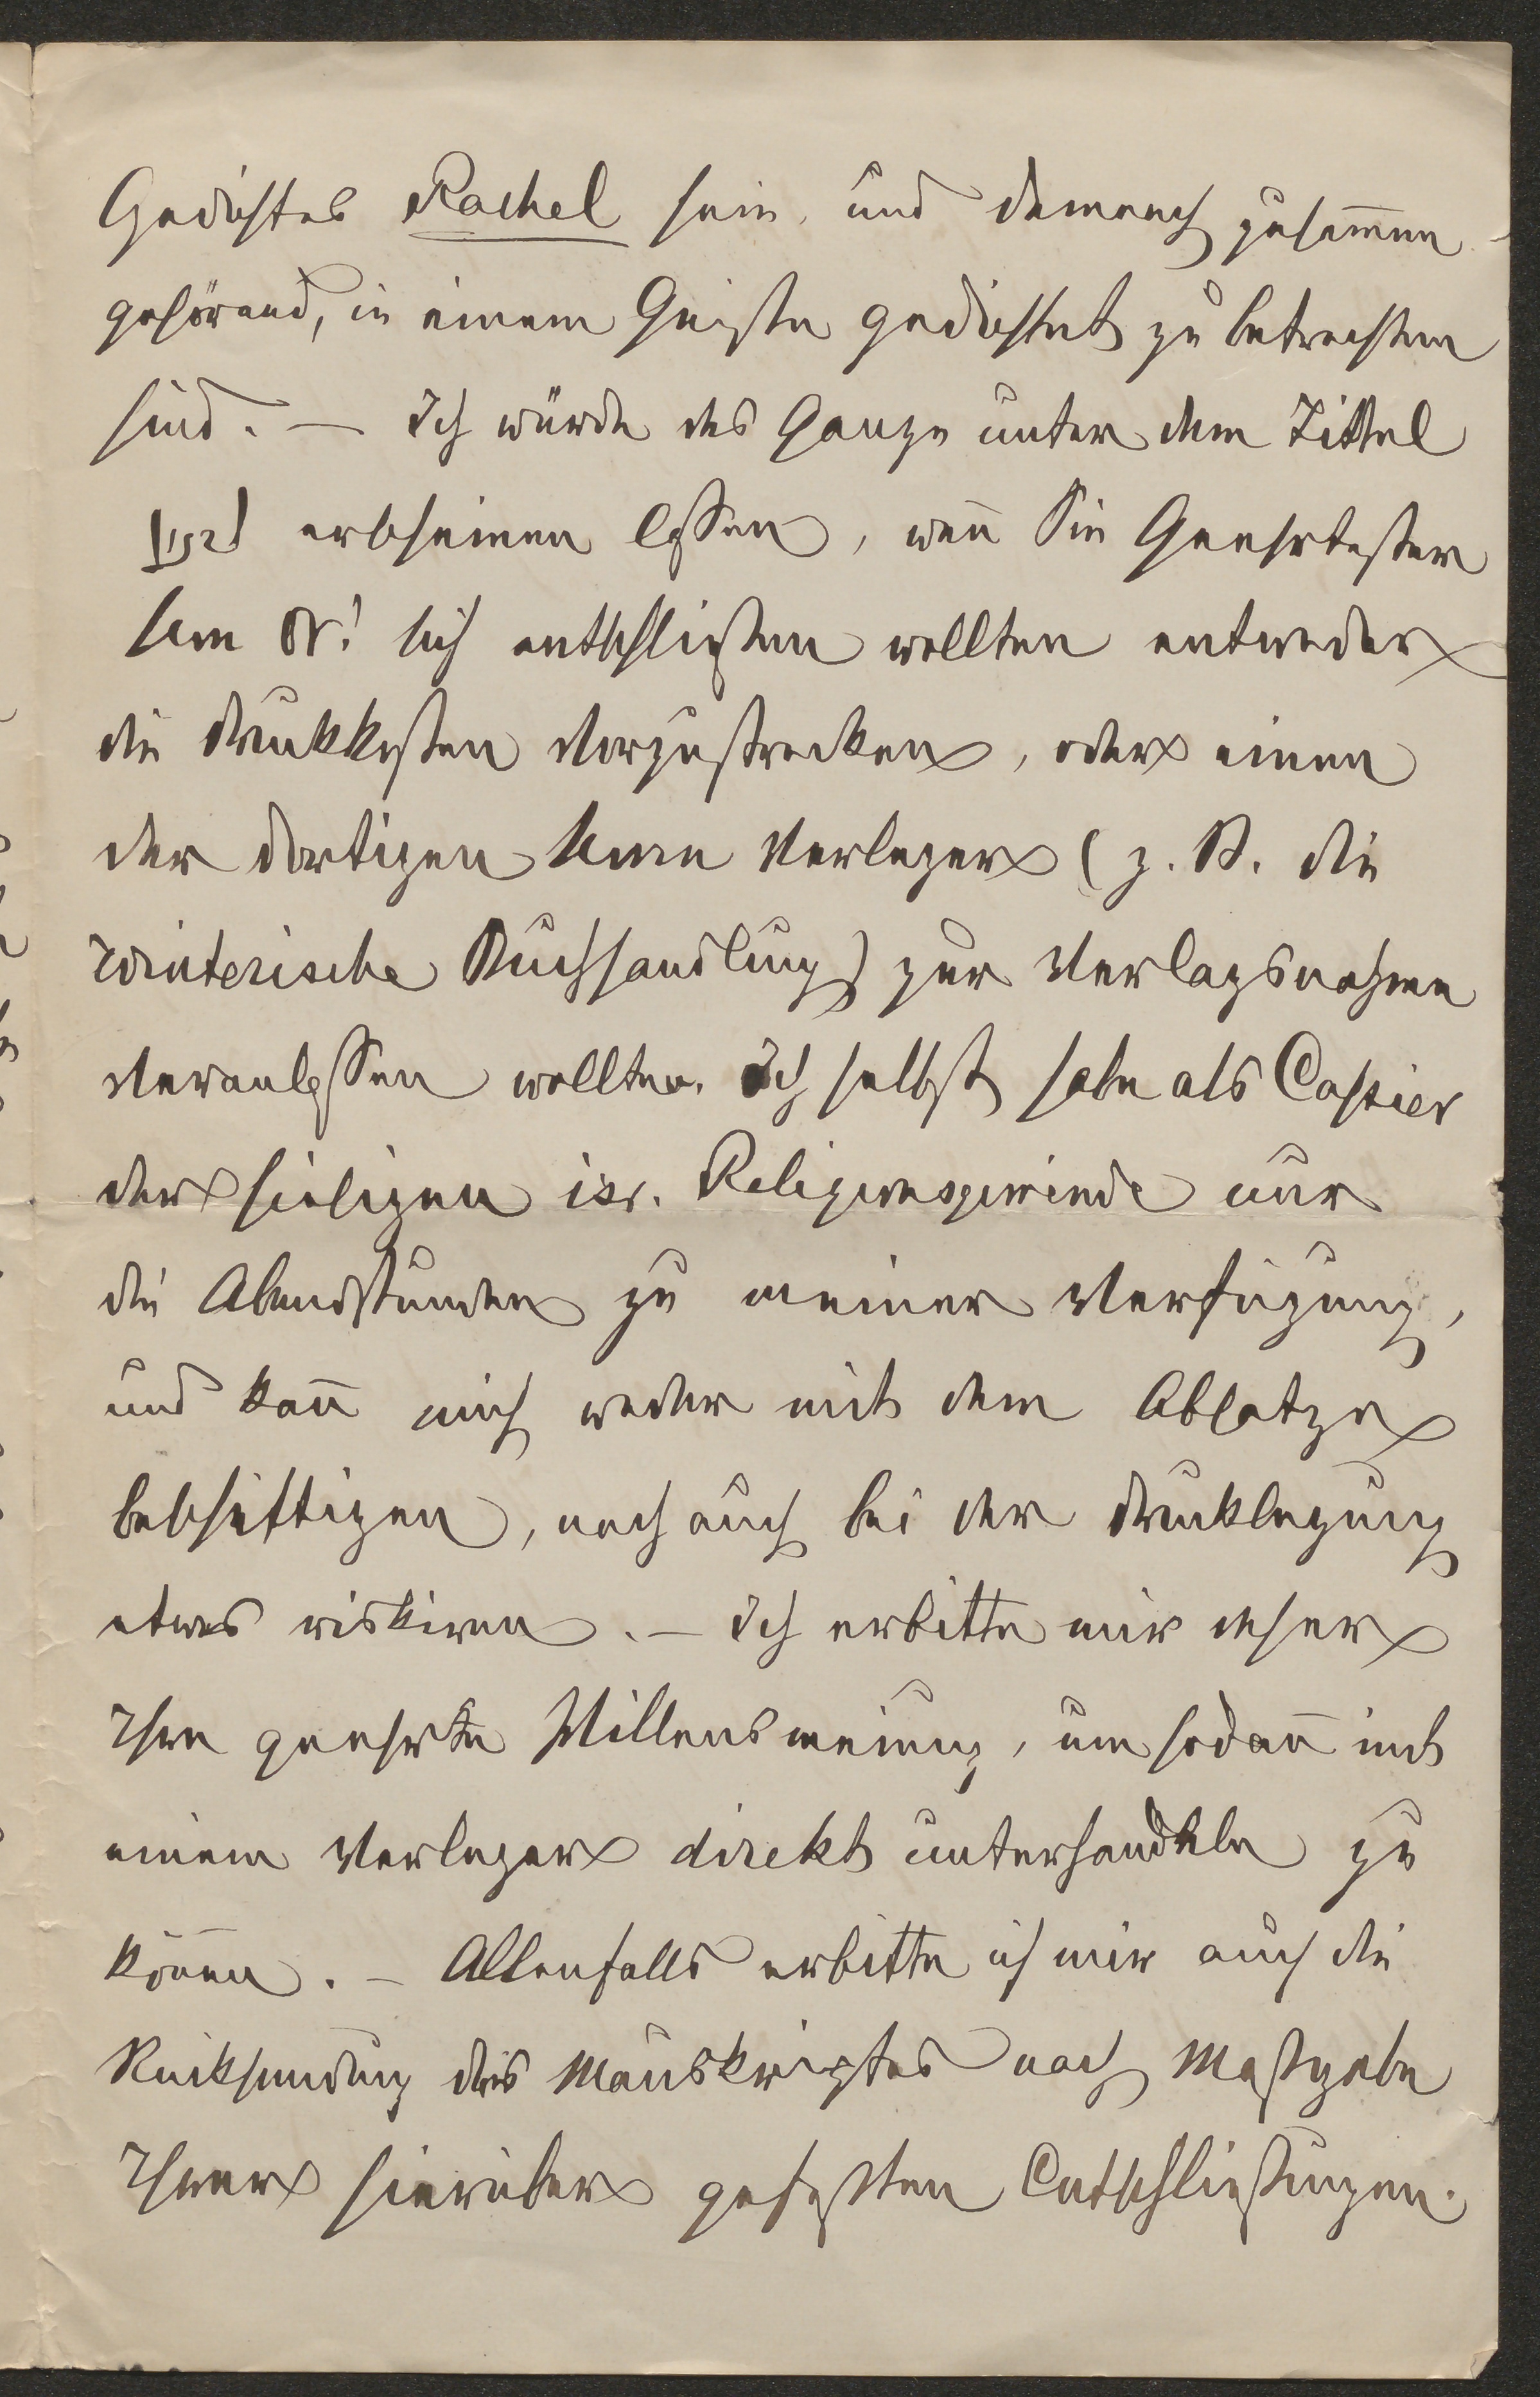 Gedichtes Rachel sein und demnach zusam̅en
gehörend, in einem Geiste gedichtet zu betrachten
sind. — Ich würde das Ganze unter dem Tittel
erscheinen lassen, wen̅ Sie Geehrtester
Herr Dr! sich entschließen wollten entweder
die Drukkosten vorzustrecken, oder einen
der dortigen Herrn Verleger (z. B. die
Winterische Buchhandlung) zur Verlagsnahme
veranlassen wollten. Ich selbst habe als Cassier
der hiesigen isr. Religionsgemeinde nur
die Abendstunden zu meiner Verfügung,
und kan̅ mich weder mit dem Absatze
beschäftigen, noch auch bei der Druklegung
etwas riskiren. — Ich erbitte mir daher
Ihre geehrte Willensmeinung, um sodan̅ mit
einem Verleger direkt unterhandeln zu
kön̅en. — Allenfalls erbitte ich mir auch die
Rüksendung des Manuskriptes nach Maßgabe
Ihrer hierüber gefaßten Entschließungen.